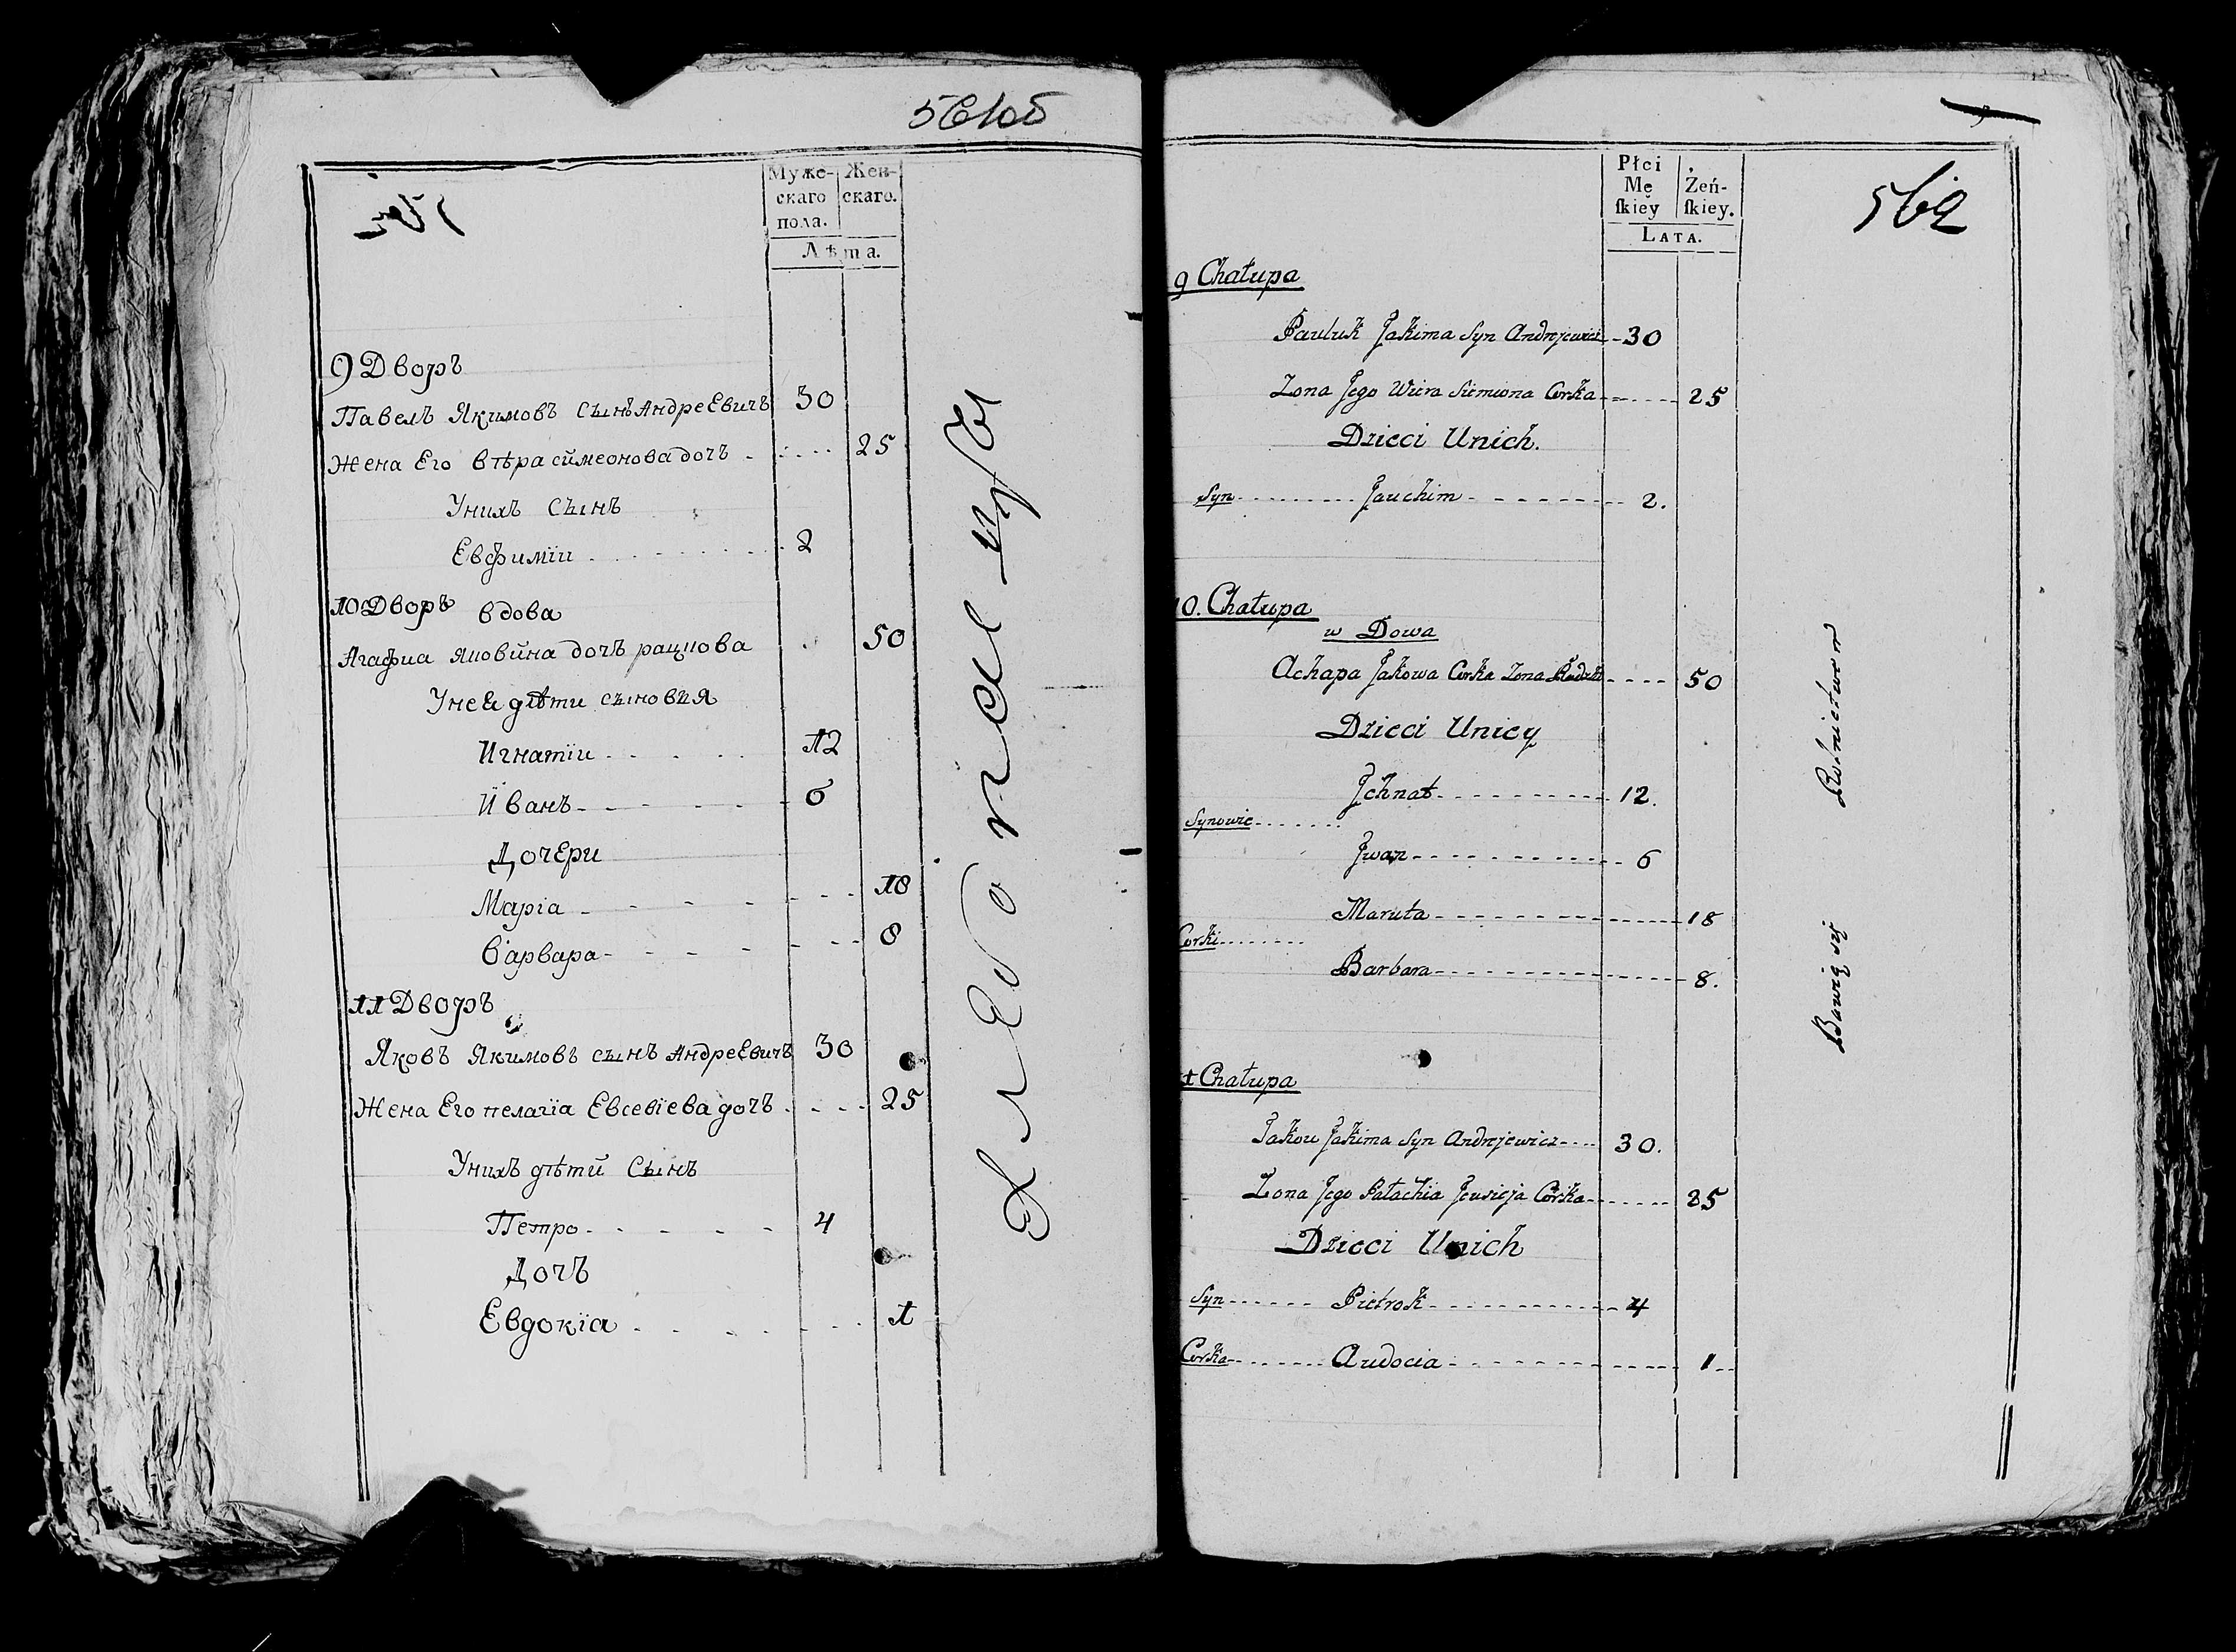 561об
Муже-
скаго
пола.
Жен-
скаго.
Лѣта.
9 Дворъ
Павелъ Якимовъ сынъ Андреевичъ 30
Жена Его вѣра симеонова дочъ - - - - - 25
Унихъ Сынъ
Евфимїи - - - - - - - - 2
10 Дворъ вдова
Агафиа яковйна дочъ 50
Унеи дѣти сыновѣя
Игнатїи - - - - - 12
Їванъ - - - - - - 6
Дочери
Марїа - - - - - - - 18
Варвара - - - - - - - 8
11 Дворъ
Яковъ Якимовъ сынъ Андреевичъ 30
Жена Его пелагїа Евсевїева дочъ - - - - 25
Унихъ дѣтй Сынъ
Петро - - - - - - 4
Дочъ
Евдокїа - - - - - - - 1
Хлебопасцы
Płci
Mę
ſkiey
Żeń-
ſkiey.
LATA.
562
9 Chałupa
Pauluk Jakima Syn Andrzjewicz - - 30
Zona Jego Wiera Siemiona Corka - - - - - - 25
Dzieci Unich.
Syn - - - - - - - - - Jauchim - - - - - - - - - - 2.
10. Chałupa
w Dowa
Achapa Jakowa Corka Zona - - - - 50
Dzieci Unicy
Jchnat - - - - - - - - - - 12.
Synowie - - - - - - -
Jwan - - - - - - - - - - - 6
Maruta - - - - - - - - - - - - - - 18
Corki - - - - - - - -
Barbara - - - - - - - - - - - - - - 8.
11 Chałupa
Jakou Jakima Syn Andrzjewicz - - - - 30.
Zona Jego Pałachia Jeusieja Corka - - - - - - 25
Dzieci Unich
Syn - - - - - - Pietrok - - - - - - - - - - - 4
Corka - - - - - - - - Audocia - - - - - - - - - - - - - - 1 - -
Bawią się Rolnictwem